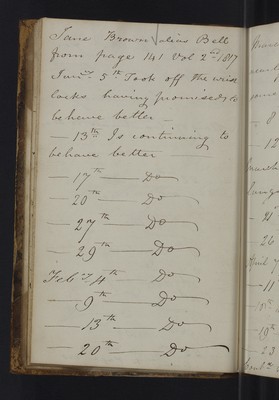 Jane Brown alias Bell
from page 141 Vol 2nd 1817
Janry 5th Took off the wrist
locks having promised to
behave better
13th Is continuing to
behave better
17th Do
20th Do
27th Do
29 th Do
Feby 4th Do
9th Do
13th Do
20th Do